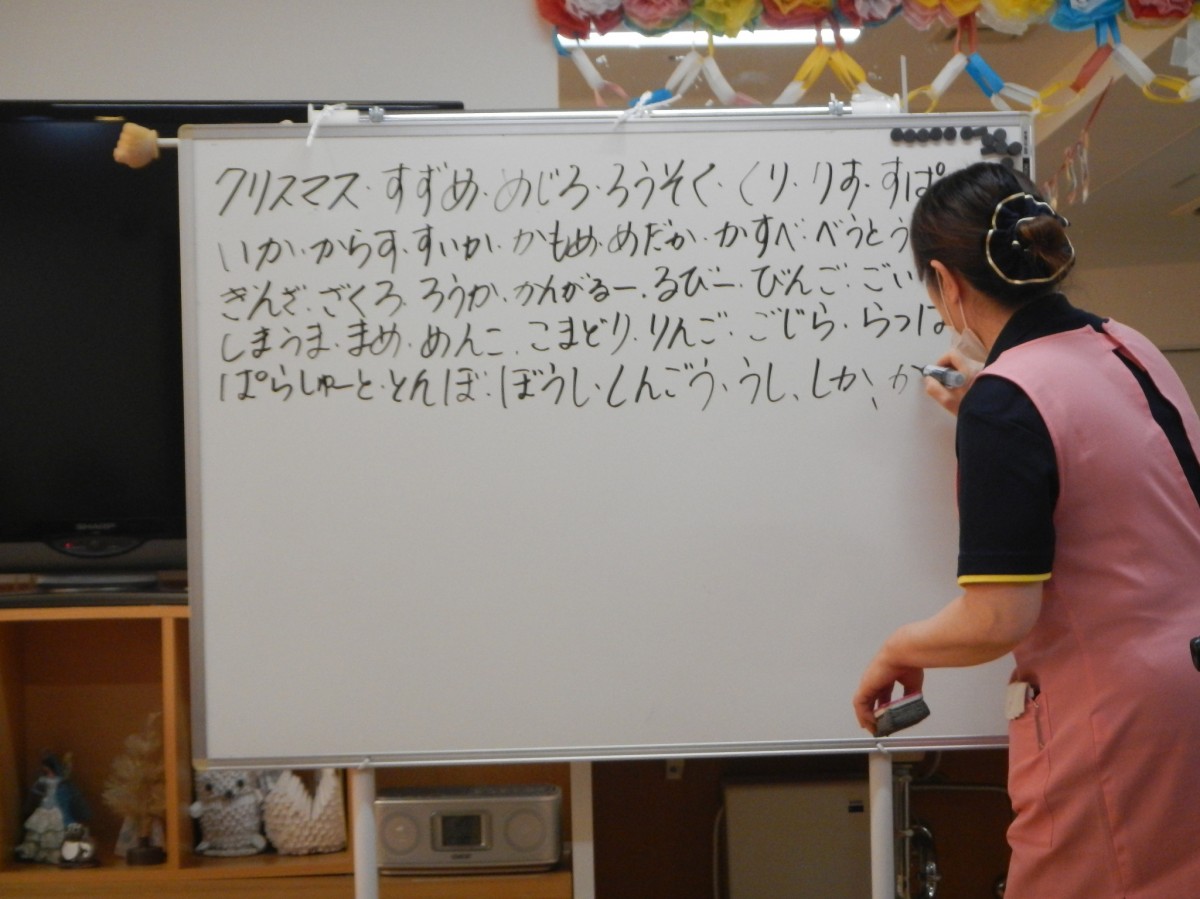 クリスマス・すずめ・めじろ・ろうそく・くり・りす・すぱ
いか・からす・すいか・かもめ・めだか・かすべ・べうとう
ぎんざ・ざくろ・ろうか・かんがるー・るびー・びんご・ごい
しまうま・まめ・めんこ・こまどり・りんご・ごじら・らっぱ
ぱらしゅーと・とんぼ・ぼうし・しんごう・うし、しか、か
SHARP